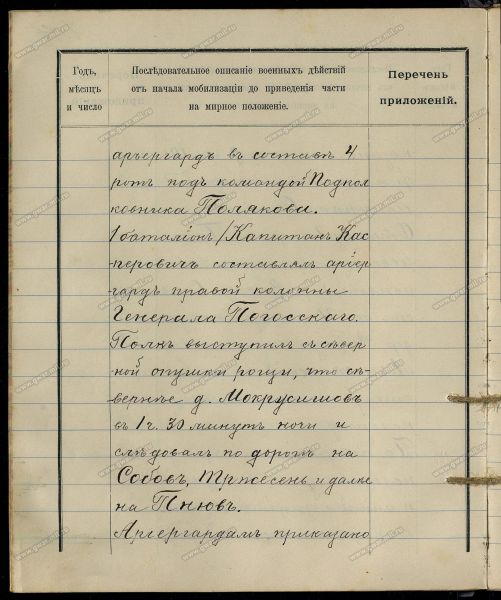 Годъ,
мѣсяцъ
и число
Послѣдовательное описаніе военныхъ дѣйствій
отъ начала мобилизаціи до приведенія части
на мирное положеніе.
Перечень
приложеній.
арьергардъ въ составѣ 4
ротъ подъ командой Подпол
ковника Полякова.
1 баталіонъ /Капитанъ Кас
перовичъ составлялъ аріер-
гардъ правой колонны
Генерала Погосскаго.
Полкъ выступилъ съ сѣвер
ной опушки рощи, что сѣ-
вернѣе д. Мокрусишовъ
въ 1 ч. 30 минутъ ночи и
слѣдовалъ по дорогѣ на
Собовъ, Тржесень и далѣе
на Пнювъ.
Аріергардамъ приказано
www.gwar.mil.ru